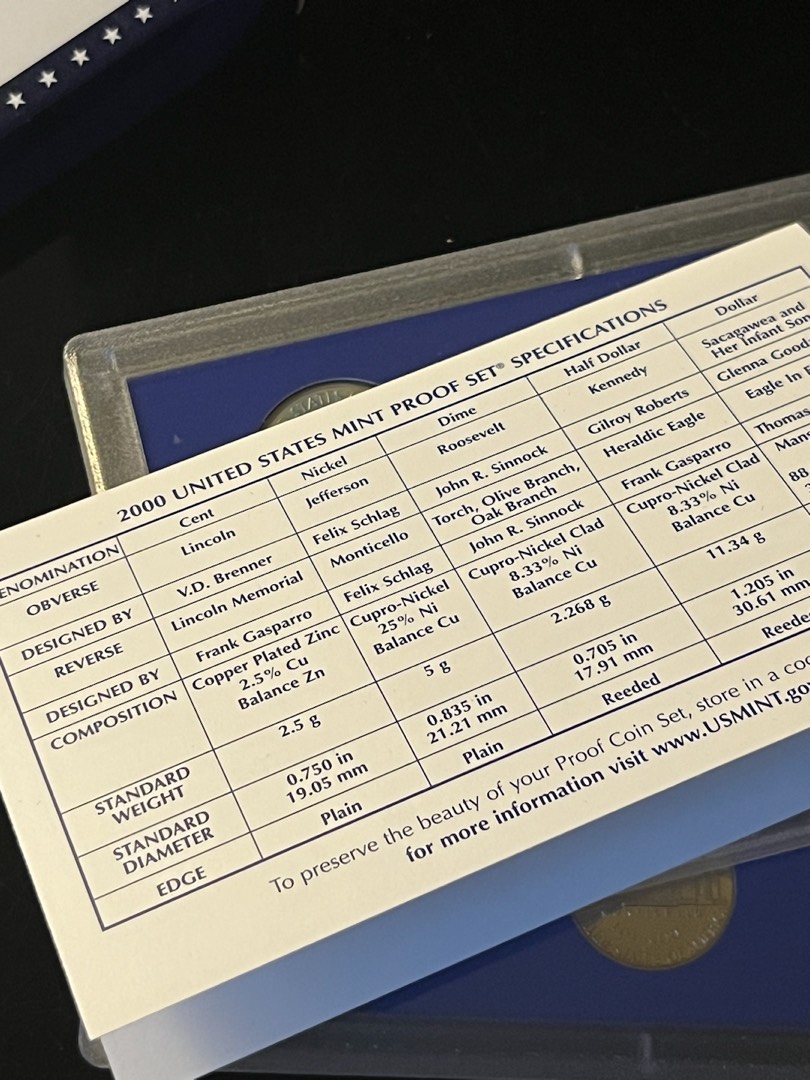 2000 UNITED STATES MINT PROOF SET® SPECIFICATIONS
ENOMINATION Cent Nickel Dime Half Dollar Dollar
OBVERSE Lincoln Jefferson Roosevelt Kennedy Sacagawea and
Her Infant Son
DESIGNED BY V.D. Brenner Felix Schlag John R. Sinnock Gilroy Roberts Glenna Good
REVERSE Lincoln Memorial Monticello Torch, Olive Branch, Heraldic Eagle Eagle In
Oak Branch
DESIGNED BY Frank Gasparro Felix Schlag John R. Sinnock Frank Gasparro Thomas
COMPOSITION Copper Plated Zinc Cupro-Nickel Cupro-Nickel Clad Cupro-Nickel Clad Man
2.5% Cu 25% Ni 8.33% Ni 8.33% Ni 88
Balance Zn Balance Cu Balance Cu Balance Cu
STANDARD 2.5 g 5 g 2.268 g 11.34 g
WEIGHT
STANDARD 0.750 in 0.835 in 0.705 in 1.205 in
DIAMETER 19.05 mm 21.21 mm 17.91 mm 30.61 mm
EDGE Plain Plain Reeded Reede
To preserve the beauty of your Proof Coin Set, store in a coo
for more information visit www.USMINT.gov